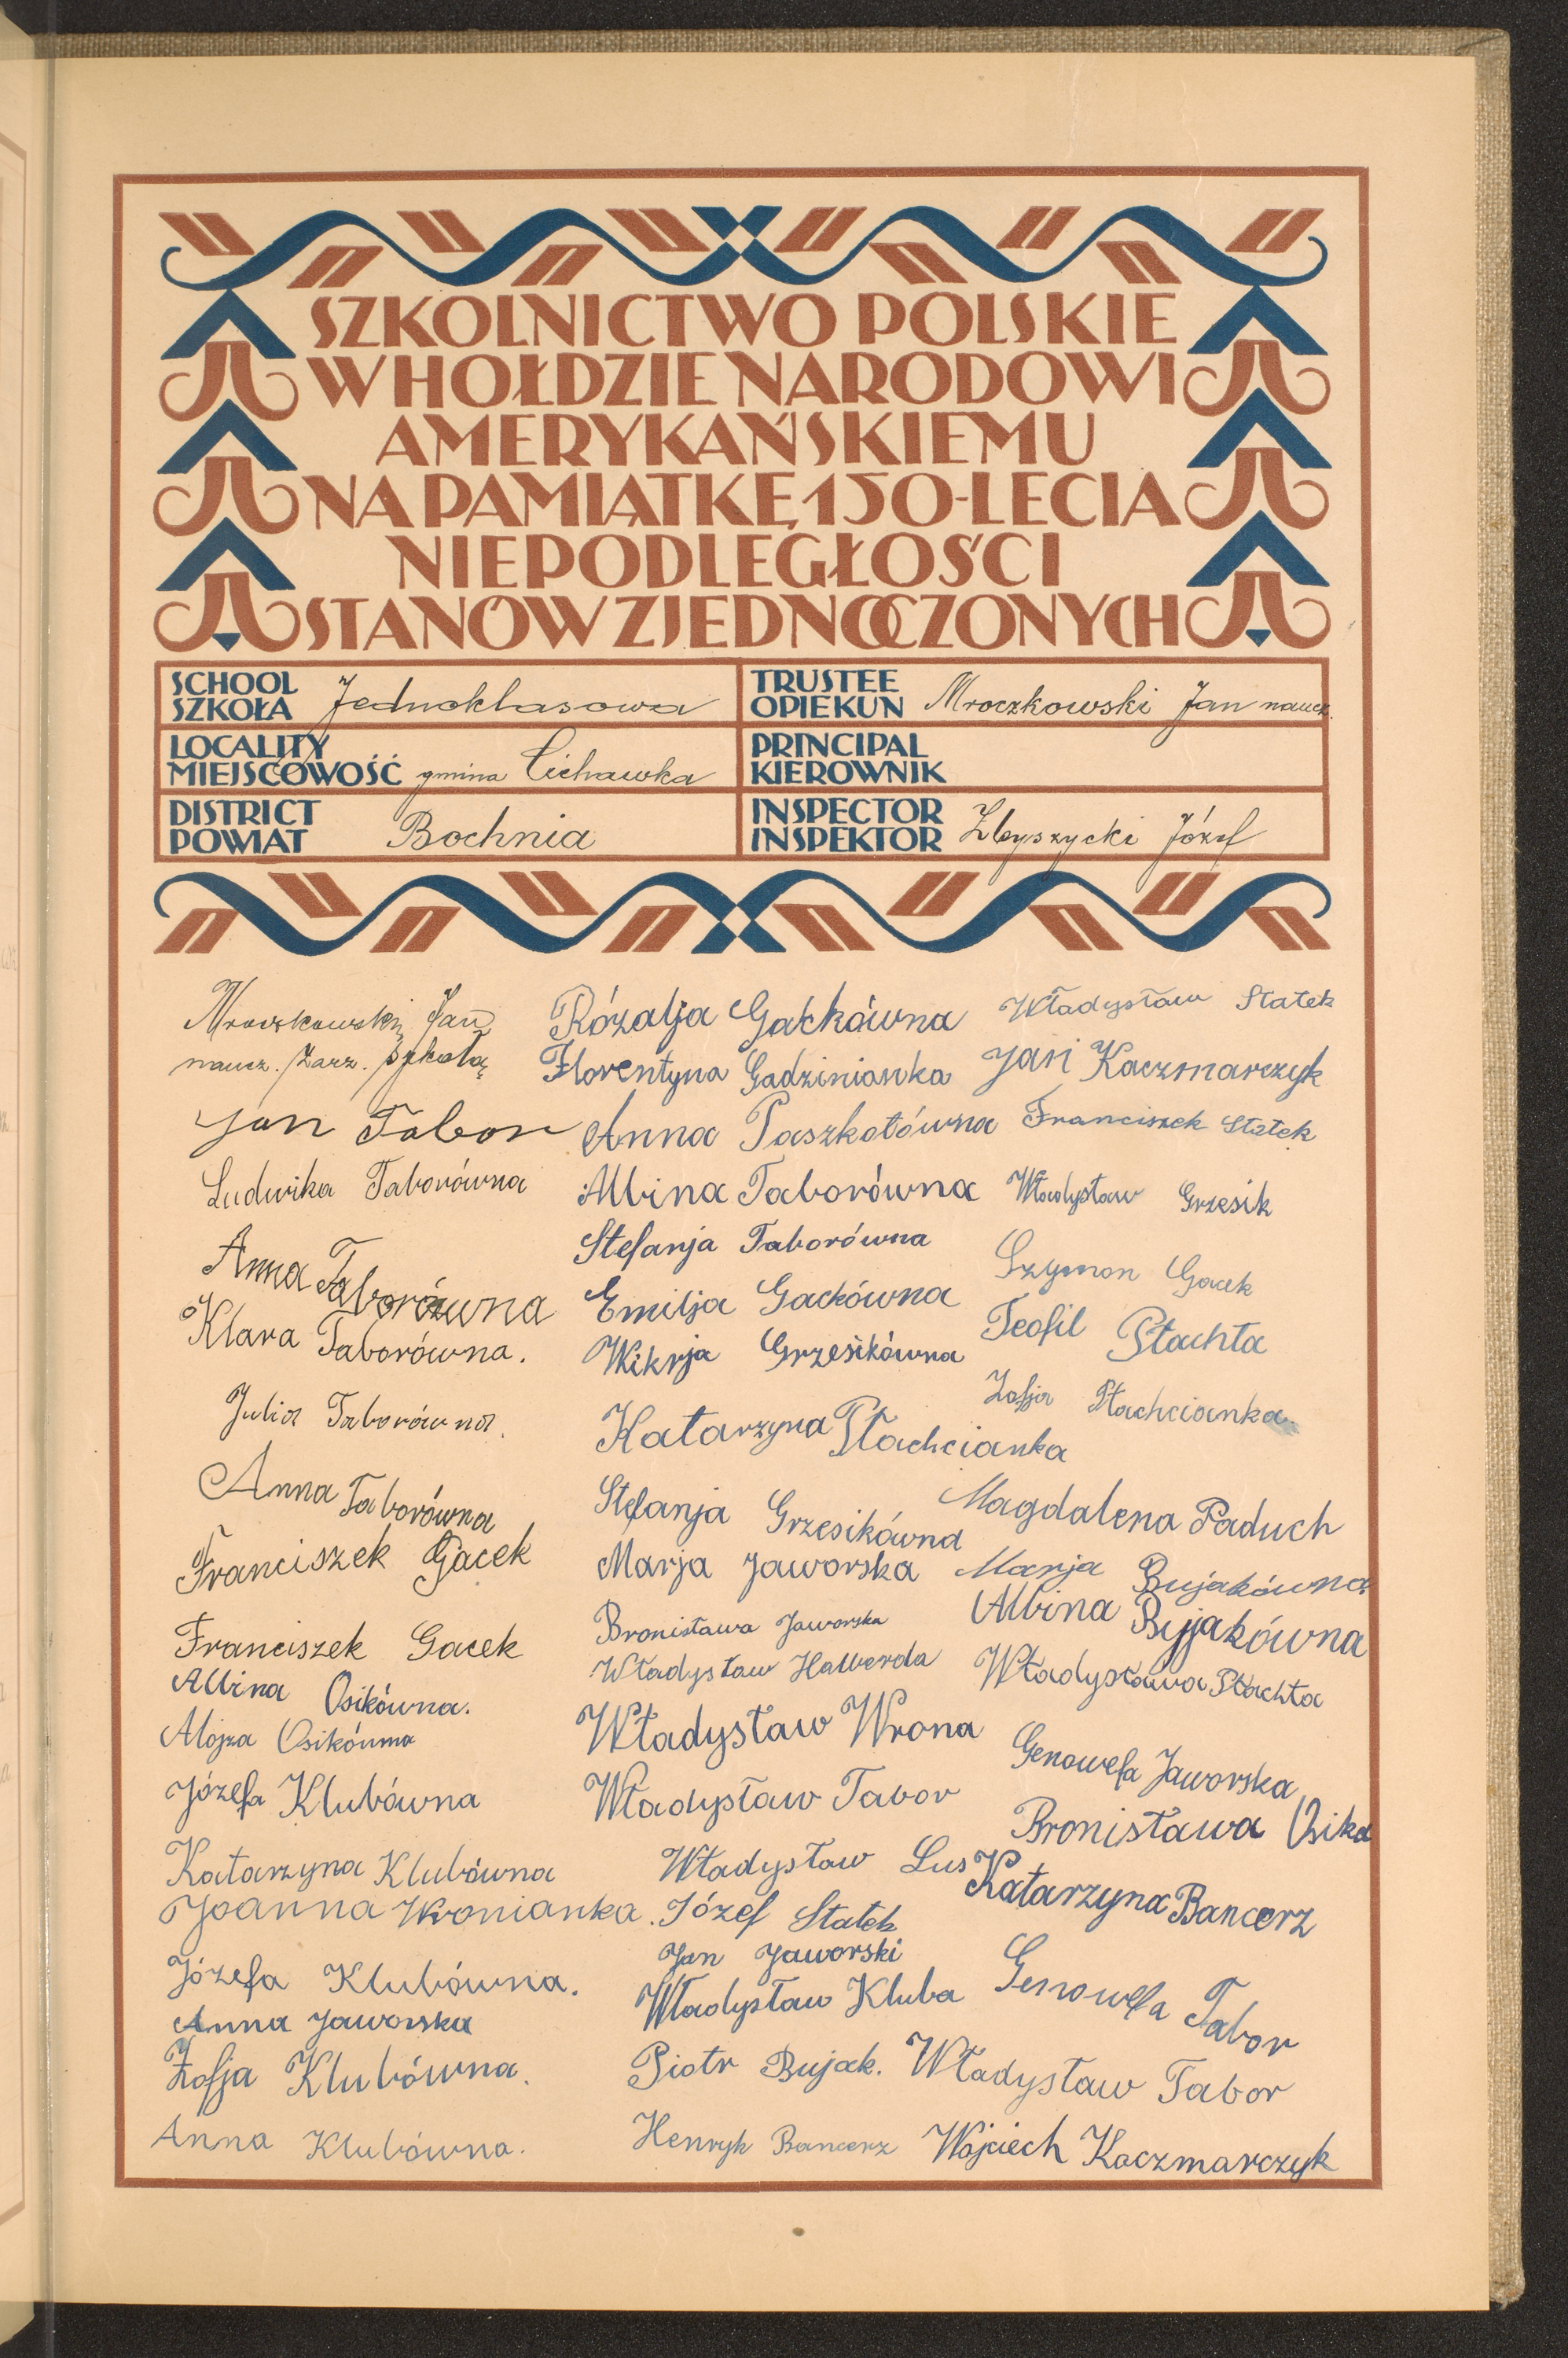 SZKOLNICTWO POLSKIE
W HOŁDZIE NARODOWI
AMERYKAŃSKIEMU
NA PAMIĄTKĘ 150-LECIA
NIEPODLEGŁOŚCI
STANÓW ZJEDNOCZONYCH
SCHOOL
SZKOŁA Jednoklasowa
TRUSTEE
OPIEKUN Mroczkowski Jan naucz.
LOCALITY
MIEJSCOWOŚĆ gmina Cichawka
PRINCIPAL
KIEROWNIK
DISTRICT
POWIAT Bochnia
INSPECTOR
INSPEKTOR Zbyszycki Józef
Mroczkowski Jan
naucz. zarz. szkołą
Jan Tabor
Ludwika Taborówna
Anna Taborówna
Klara Taborówna.
Julia Taborówna.
Anna Taborówna
Franciszek Gacek
Franciszek Gacek
Albina Osikówna.
Alojza Osikówna
Józefa Klubówna
Katarzyna Klubówna
Joanna Wronianka.
Józefa Klubówna.
Anna Jaworska
Zofja Klubówna.
Anna Klubówna.
Rózalja Gackówna
Florentyna Gadzinianka
Anna Paszkotówna
Albina Taborówna
Stefanja Taborówna
Emilja Gackówna
Wikrja Grzesikówna
Katarzyna Płachcianka
Stefanja Grzesikówna
Marja Jaworska
Bronisława Jaworska
Władysław Halberda
Władysław Wrona
Władysław Tabor
Władysław Lus
Józef Statek
Jan Jaworski
Władysław Kluba
Piotr Bujak.
Henryk Bancerz
Władysław Statek
Jan Kaczmarczyk
Franciszek Statek
Władysław Grzesik
Szymon Gacek
Teofil Płachta
Zofja Płachcianka
Magdalena Paduch
Marja Bujakówna
Albina Bujakówna
Władysława Płachta
Genowefa Jaworska
Bronisława Osika
Katarzyna Bancerz
Genowefa Tabor
Władysław Tabor
Wojciech Kaczmarczyk